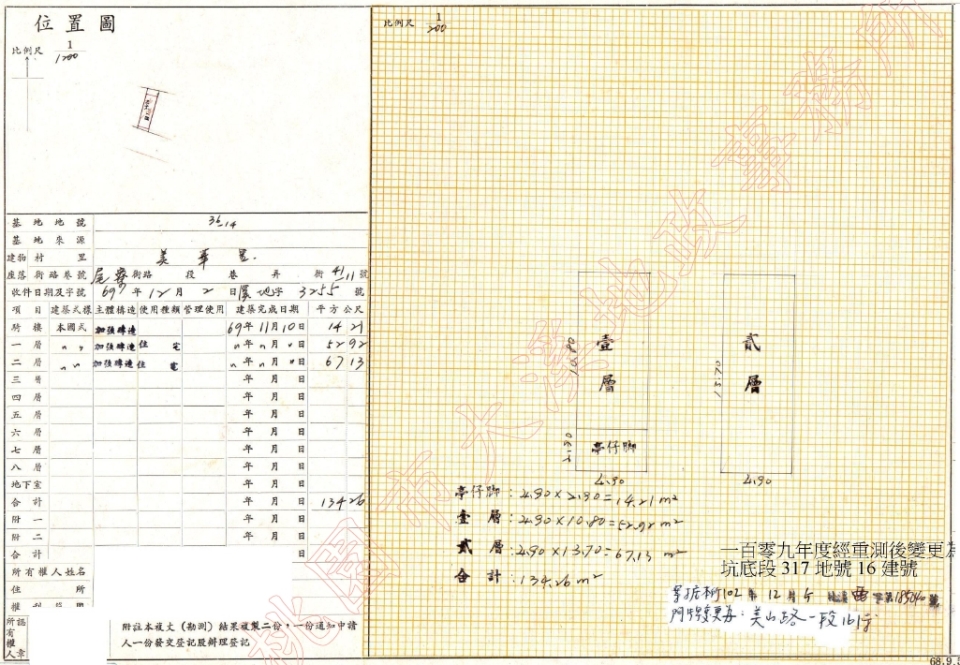 位置圖
比例尺 1/1200
基地地號 36-14
基地來源
建物村里 美華里.
座落街路巷號 尾寮街路 段 巷 弄 街 41-11 號
收件日期及字號 69年12月2日 字 3255 號
項目 建築式樣 主體構造 使用種類 管理使用 建築完成日期 平方公尺
騎樓 本國式 加強磚造 69年11月10日 14 21
一層 〃〃 加強磚造 住宅 〃年〃月〃日 52 92
二層 〃〃 加強磚造 住宅 〃年〃月〃日 67 13
三層 年 月 日
四層 年 月 日
五層 年 月 日
六層 年 月 日
七層 年 月 日
八層 年 月 日
地下室 年 月 日
合計 年 月 日 134 26
附一 年 月 日
附二 年 月 日
合計 日
所有權人姓名
住所
附註本複丈（勘測）結果複製二份，一份通知申請
人一份發交登記股辦理登記
比例尺 1/200
壹層
10.80
亭仔脚
2.90
4.90
貳層
13.70
4.90
亭仔脚：4.90×2.90=14.21m²
壹層：4.90×10.80=52.92m²
貳層：4.90×13.70=67.13m²
合計：134.26m²
一百零九年度經重測後變更為
坑底段 317 地號 16 建號
102年12月
門牌變更為：美山路一段161号
68.9.
桃園市大溪地政事務所